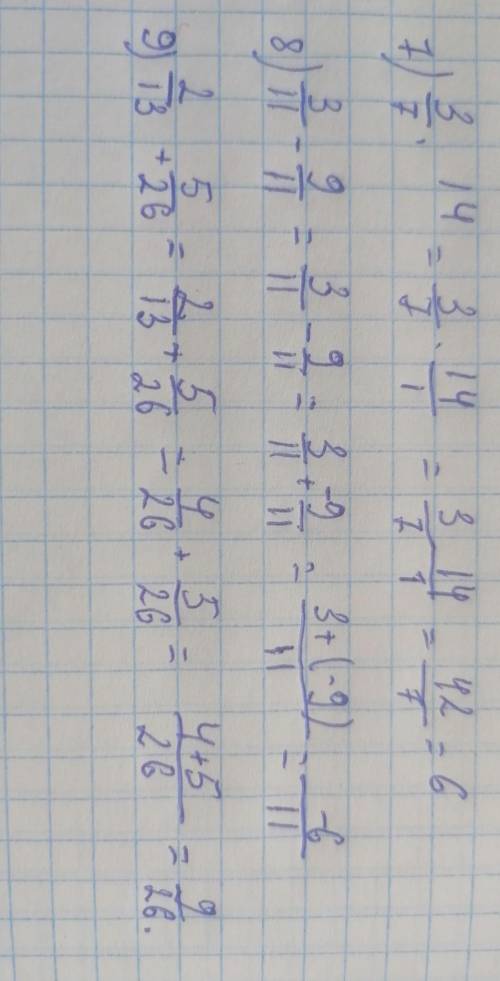 7) 3/7 · 14 = 3/7 · 14/1 = 3 14/7 1 = 42/7 = 6
8) 3/11 - 9/11 = 3/11 - 9/11 = 3/11 + -9/11 = 3+(-9)/11 = -6/11
9) 2/13 + 5/26 = 2/13 + 5/26 = 4/26 + 5/26 = 4+5/26 = 9/26.